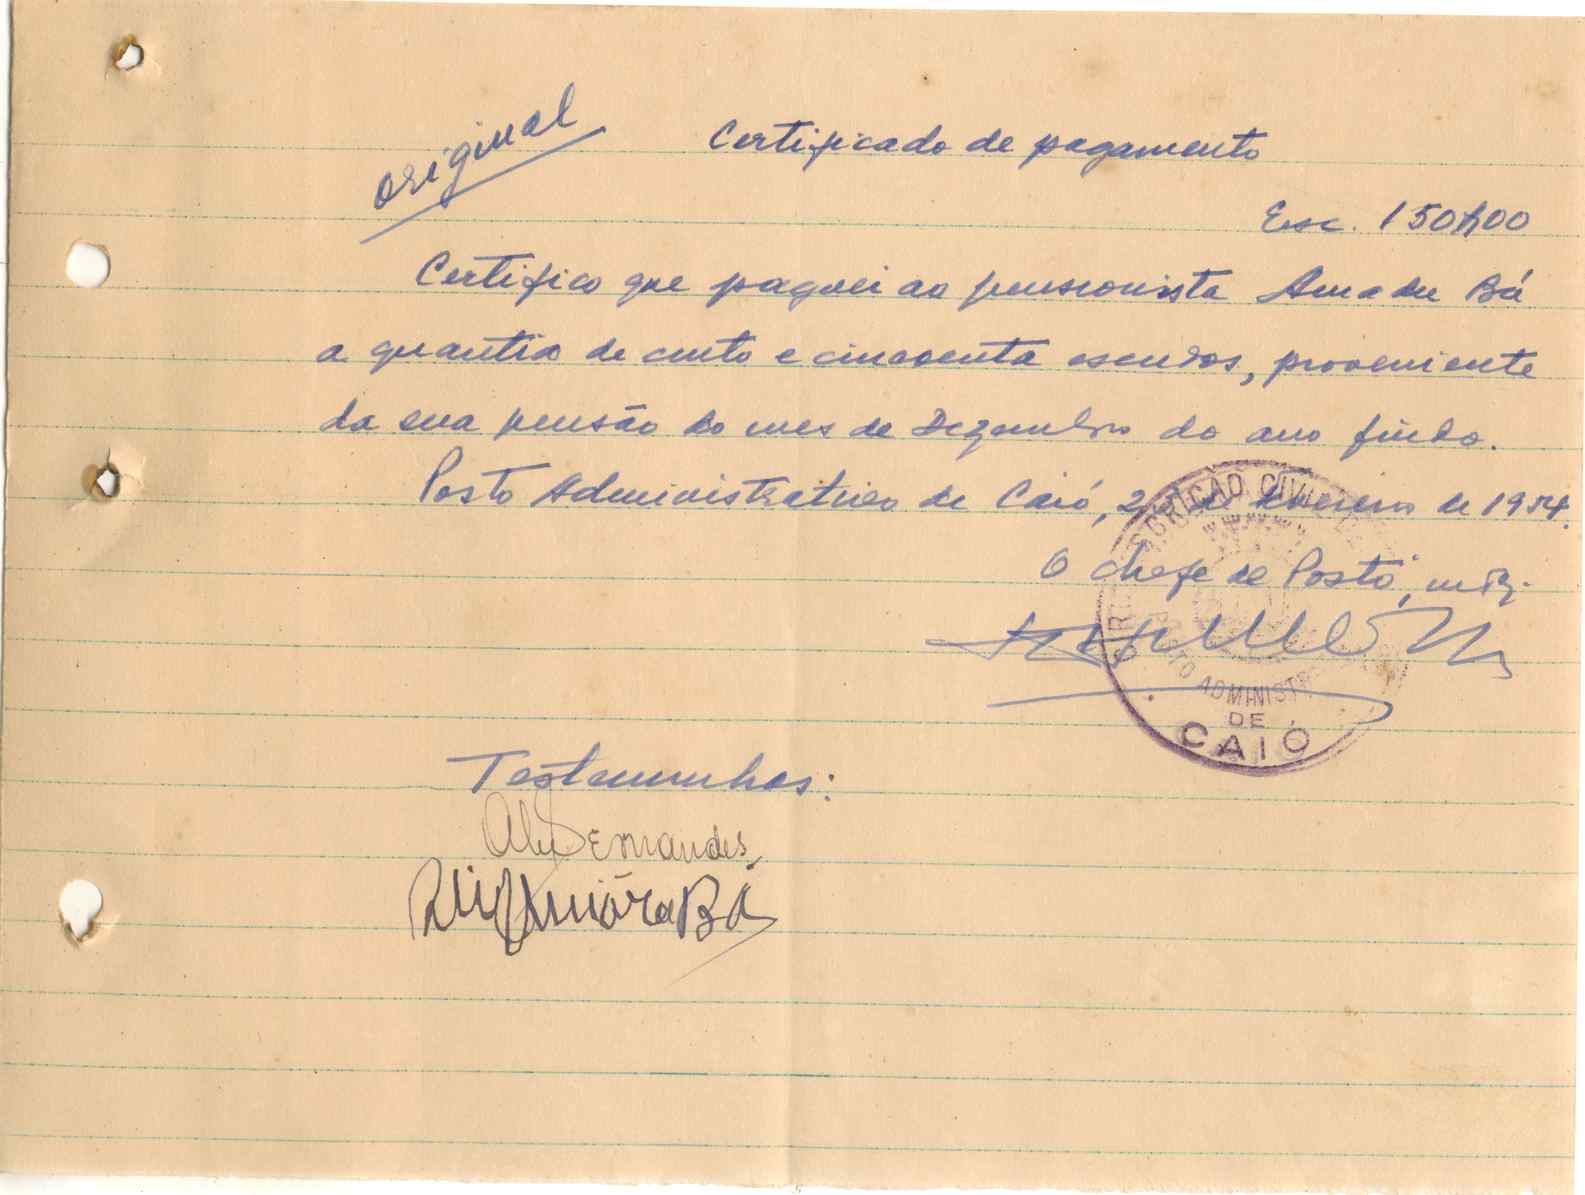 original
Certificado de pagamento
Esc. 150$00
Certifico que paguei ao pensionista Amadu Bá
a quantia de cento e cincoenta escudos, proveniente
da sua pensão do mes de Dezembro do ano findo.
Posto Administrativo de Caió, de Fevereiro de 1954.
O Chefe de Posto,
CIVIL
POSTO ADMINIST
DE
CAIÓ
Testemunhas:
Fernandes
Bá